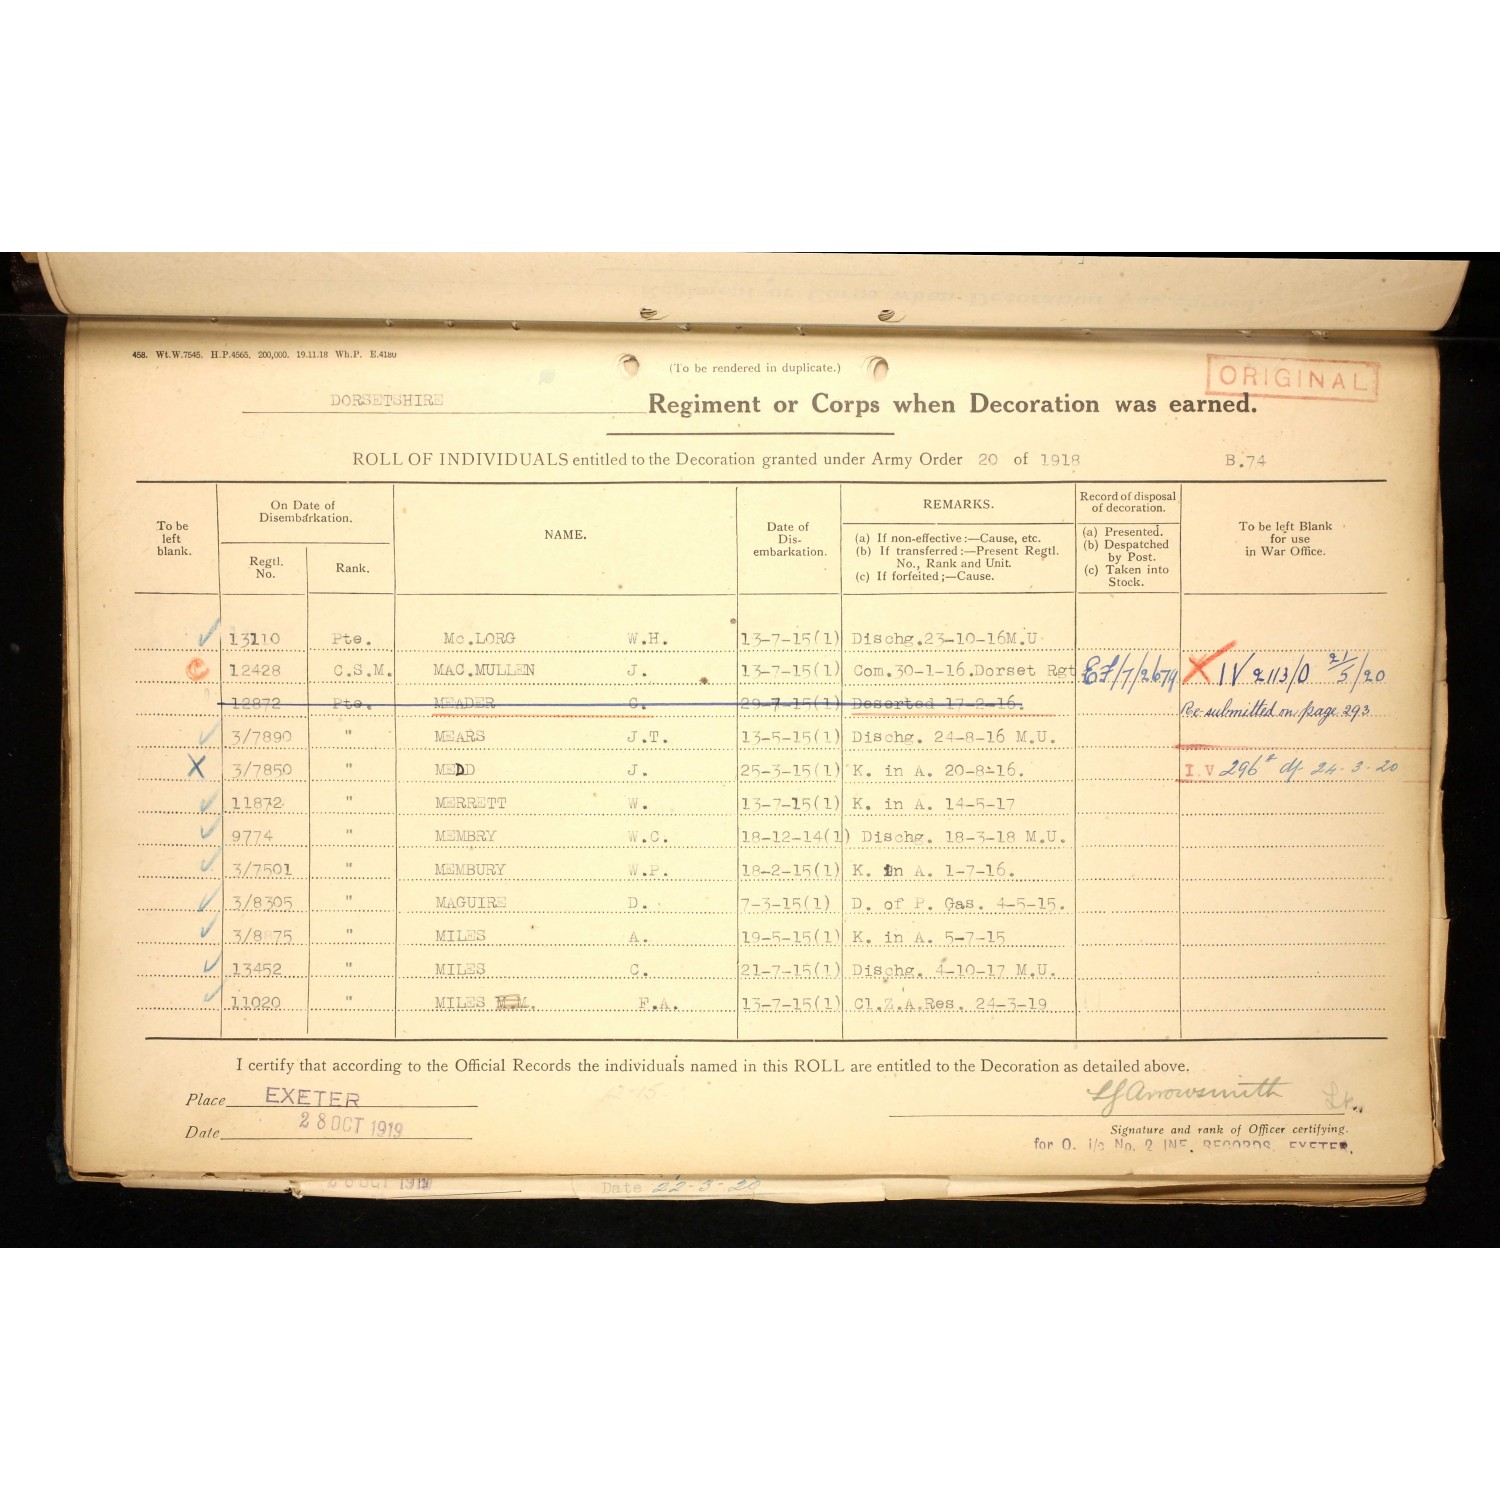 458. Wt.W.7545. H.P.4565. 200,000. 19.11.18 Wh.P. E.4180
(To be rendered in duplicate.)
ORIGINAL
DORSETSHIRE Regiment or Corps when Decoration was earned.
ROLL OF INDIVIDUALS entitled to the Decoration granted under Army Order 20 of 1918 B.74
To be left blank.
On Date of Disembarkation.
Regtl. No.
Rank.
NAME.
Date of Disembarkation.
REMARKS.
(a) If non-effective:—Cause, etc.
(b) If transferred:—Present Regtl. No., Rank and Unit.
(c) If forfeited;—Cause.
Record of disposal of decoration.
(a) Presented.
(b) Despatched by Post.
(c) Taken into Stock.
To be left Blank for use in War Office.
13110 Pte. Mc.LORG W.H. 13-7-15(1) Dischg.23-10-16M.U
12428 C.S.M. MAC.MULLEN J. 13-7-15(1) Com.30-1-16.Dorset Rgt EF/7/2679 X IV 2113/O 21/5/20
12872 Pte. MEADER G. 29-7-15(1) Deserted 17-2-16. Re-submitted on page 293
3/7890 " MEARS J.T. 13-5-15(1) Dischg. 24-8-16 M.U.
X 3/7850 " MEDD J. 25-3-15(1) K. in A. 20-8-16. I.V 296 df 24-3-20
11872 " MERRETT W. 13-7-15(1) K. in A. 14-5-17
9774 " MEMBRY W.C. 18-12-14(1) Dischg. 18-3-18 M.U.
3/7501 " MEMBURY W.P. 18-2-15(1) K. in A. 1-7-16.
3/8305 " MAGUIRE D. 7-3-15(1) D. of P. Gas. 4-5-15.
3/8875 " MILES A. 19-5-15(1) K. in A. 5-7-15
13452 " MILES C. 21-7-15(1) Dischg. 4-10-17 M.U.
11020 " MILES M.M. F.A. 13-7-15(1) Cl.Z.A.Res. 24-3-19
I certify that according to the Official Records the individuals named in this ROLL are entitled to the Decoration as detailed above.
Place EXETER
Arrowsmith Lt.
Date 28 OCT 1919
Signature and rank of Officer certifying.
for O. i/c No. 2 INF. RECORDS, EXETER.
Date 22-3-20